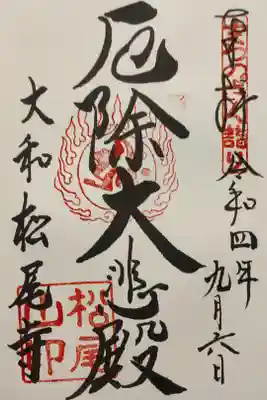 奉拝 令和四年九月六日
厄除大悲殿
大和松尾寺
松尾山印